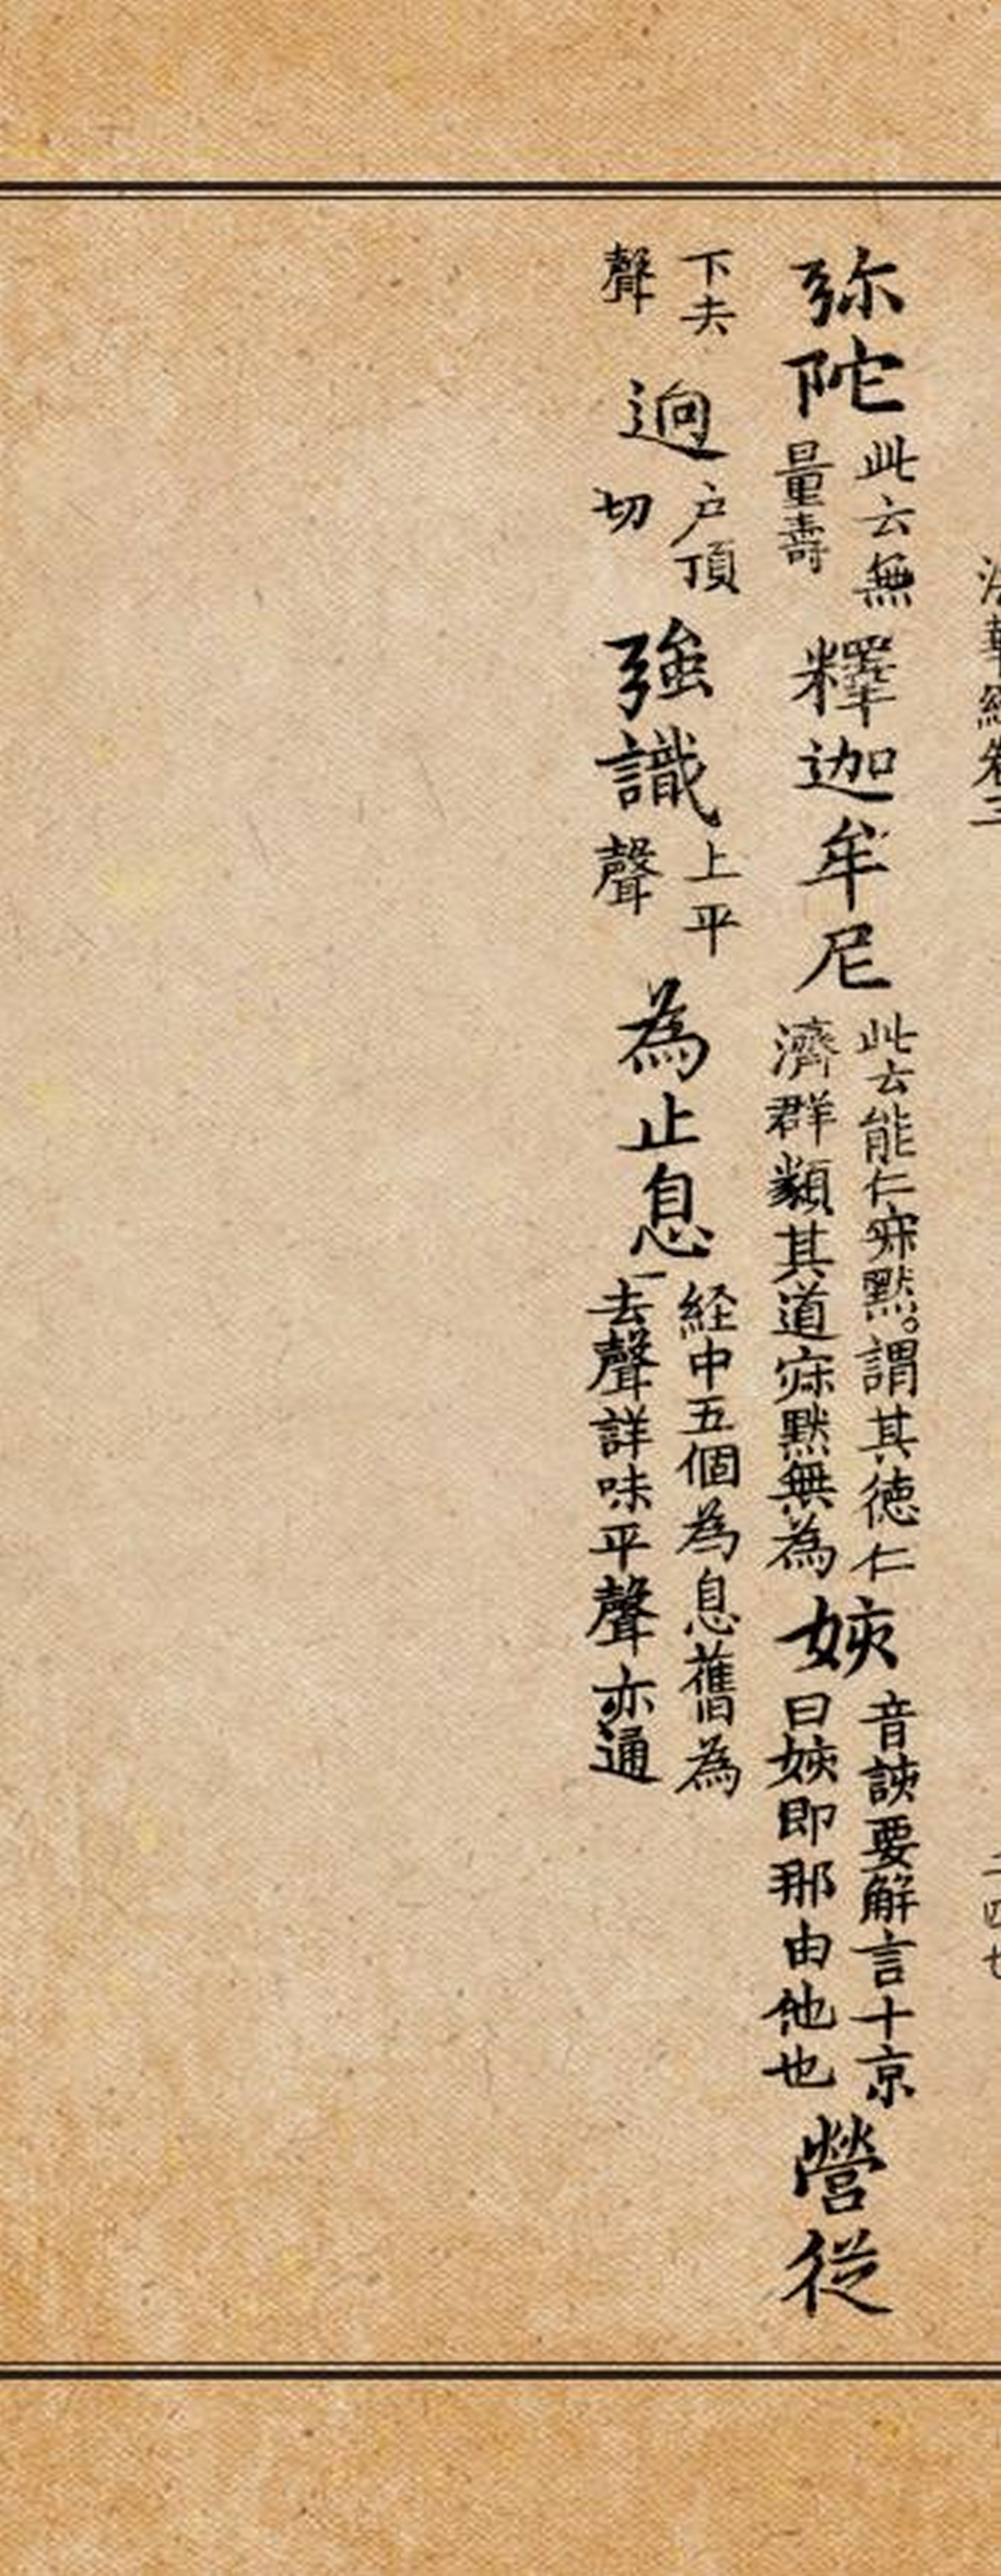 弥陀此云無量壽釋迦牟尼此云能仁寂默。謂其徳仁濟群類其道寂默無為姟音該要解言十京曰姟即那由他也營從
下去聲逈戶頂切強識上平聲為止息経中五個為息舊為去聲詳味平聲亦通